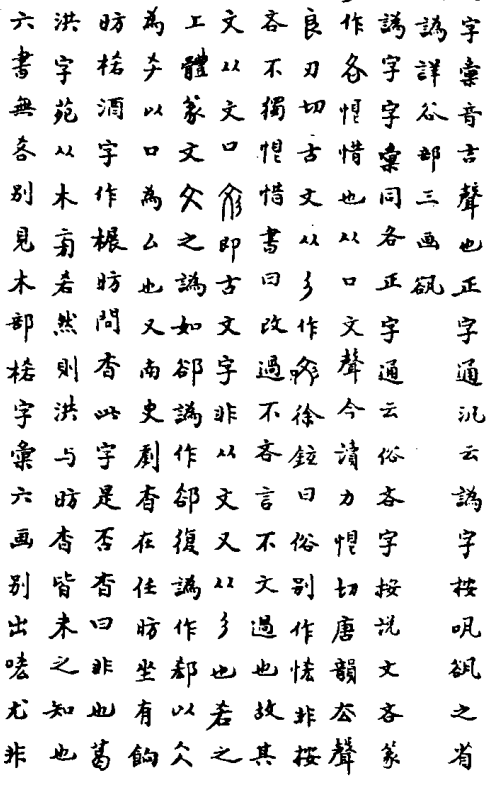 字彙音吉聲也正字通云譌字按之省
譌詳谷部三画
譌字字彙同各正字通云俗吝字按説文吝篆
作吝恨惜也从口文聲今讀力恨切唐韻聲
良刃切古文从彡作徐鉉曰俗別作悋非按
吝不獨恨惜書曰改過不吝言不文過也故其
文从文口彣即古文字非从文又从彡也若之
上體篆文之譌如郤譌作郄復譌作以
為以口為厶也又南史劉杳在任昉坐有餉
昉酒字作榐昉問杳此字是否杳曰非也葛
洪字苑从木旁然則洪与昉杳皆未之知也
六書無別見木部字彙六画別出尤非